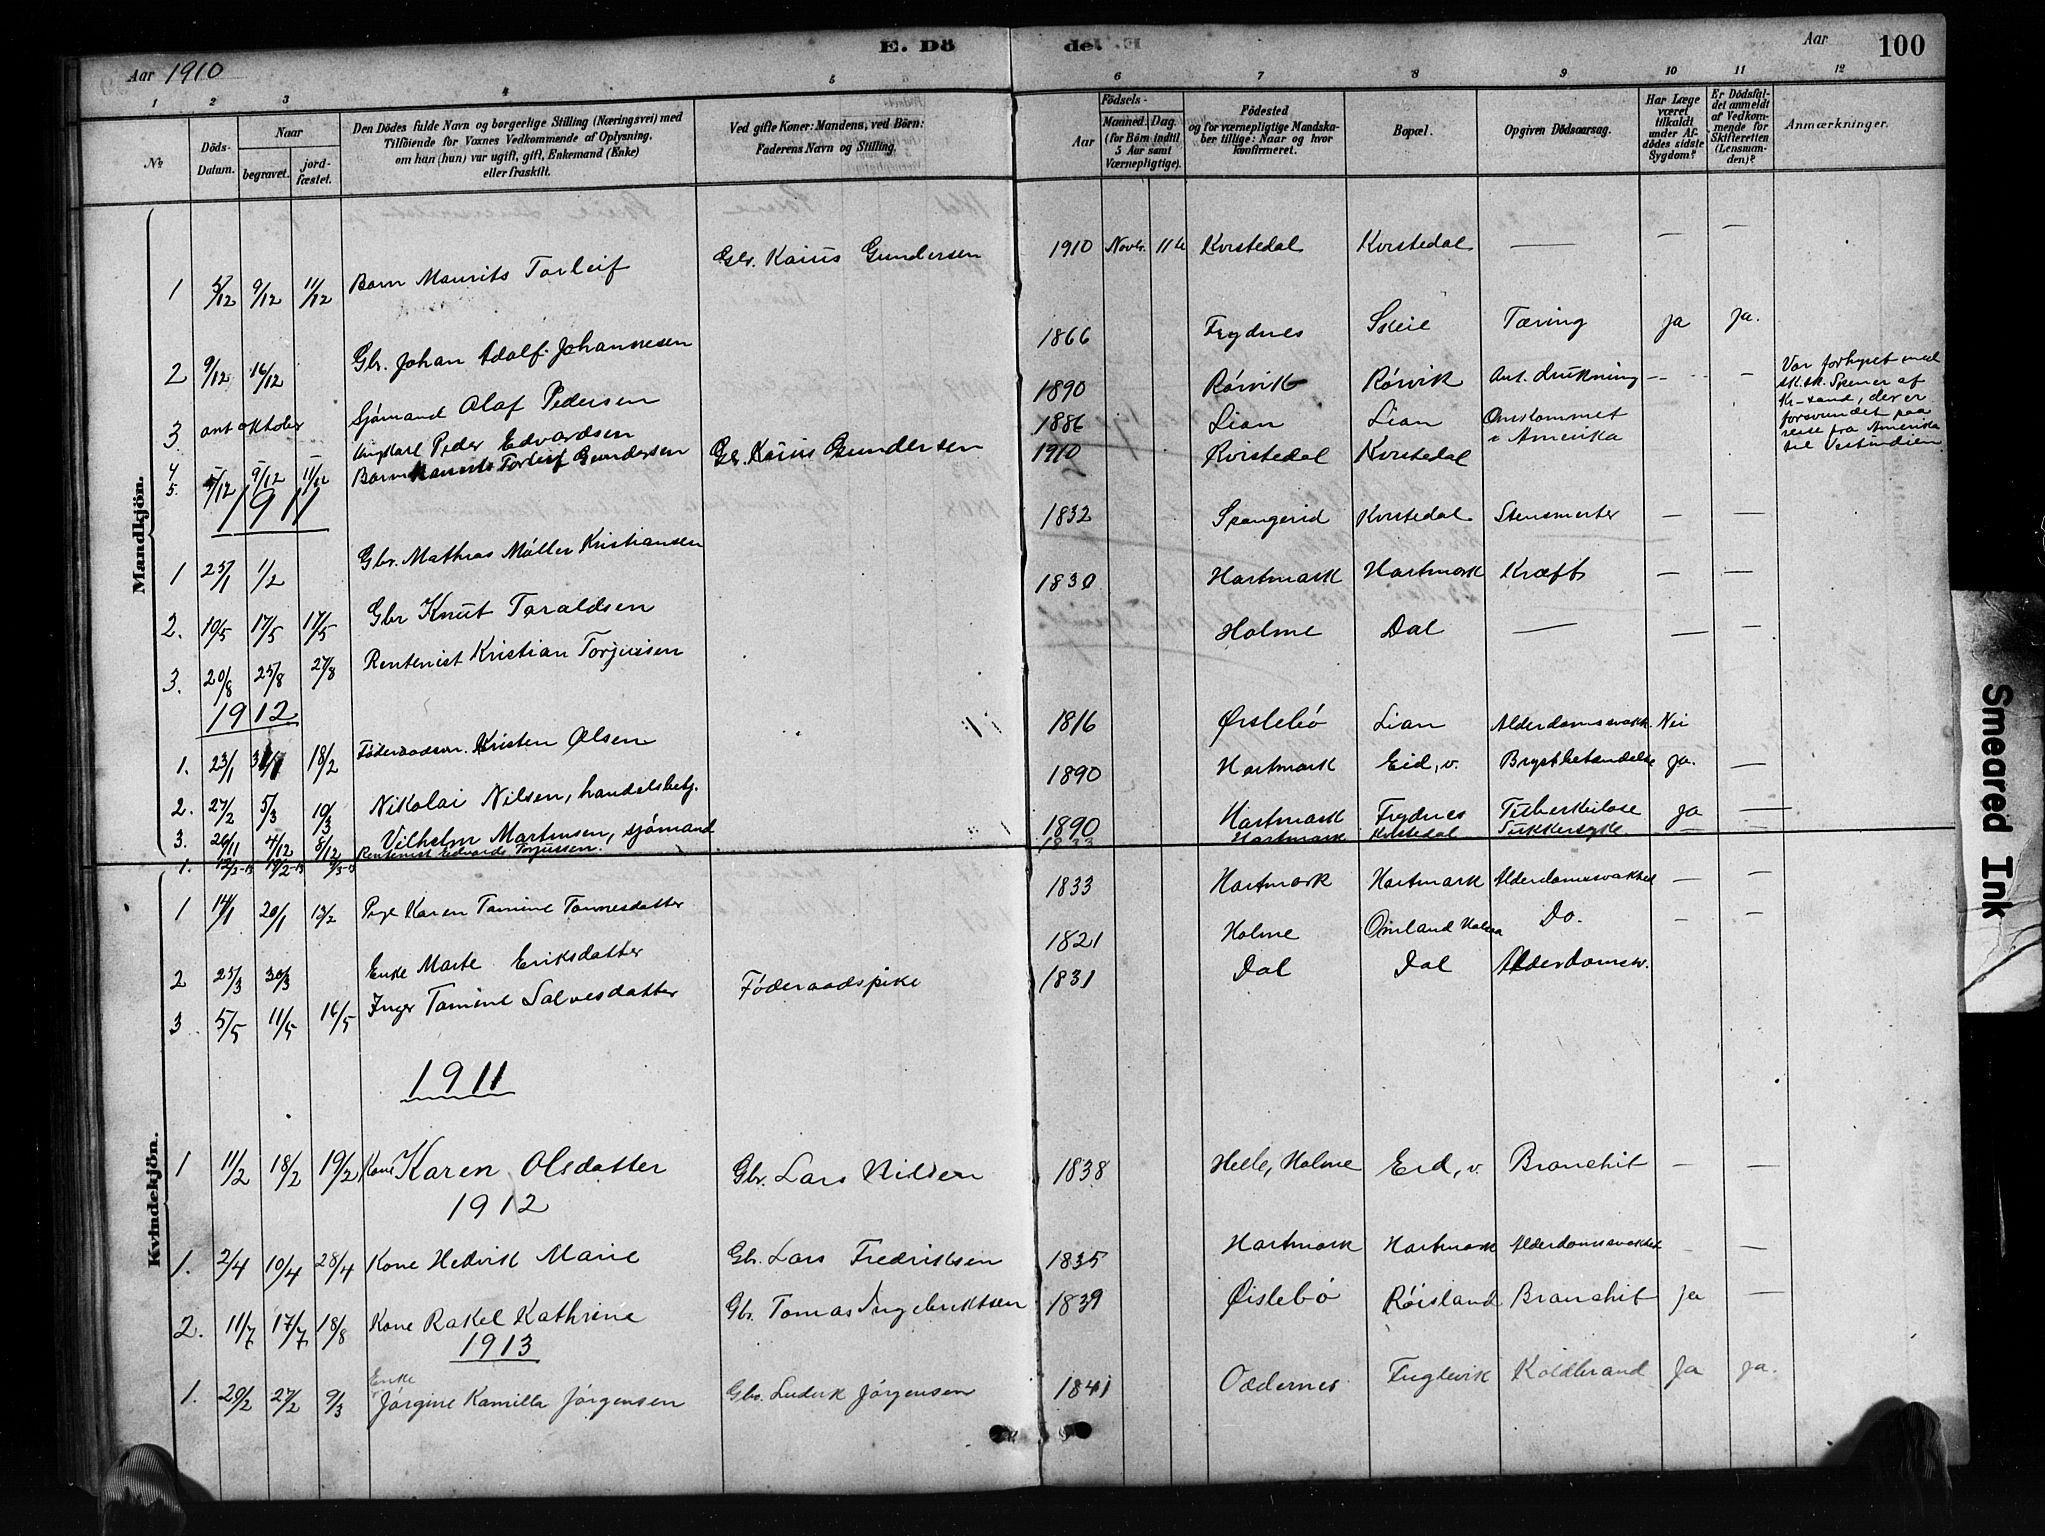 E. Dö de.
Aar 1910
Aar 100
1 2 3 4 5 6 7 8 9 10 11 12
No
Döds-Datum.
Naar
begravet.
jord-fæstet.
Den Dödes fulde Navn og borgerlige Stilling (Næringsvei) med
Tilföiende for Voxnes Vedkommende af Oplysning,
om han (hun) var ugift, gift, Enkemand (Enke)
eller fraskilt.
Ved gifte Koner: Mandens, ved Börn:
Faderens Navn og Stilling.
Födsels-
Aar
Maaned. Dag.
(for Börn indtil
5 Aar samt
Værnepligtige).
Födested
og for værnepligtige Mandska-
ber tillige: Naar og hvor
konfirmeret.
Bopæl.
Opgiven Dödsaarsag.
Har Læge
været
tilkaldt
under Af-
dödes sidste
Sygdom?
Er Dödsfal-
det anmeldt
af Vedkom-
mende for
Skifteretten
(Lensman-
den)?
Anmærkninger.
Mandkjön.
1 5/12 9/12 11/12 Barn Maurits Torleif Gbr. Kaius Gundersen 1910 Novbr. 11 Kvistedal Kvistedal — — —
2 9/12 16/12 Gbr. Johan Adolf Johannesen 1866 Frydnes Skeie Tæring ja ja.
3 ant oktober Sjømand Olaf Pedersen 1890 Rørvik Rørvik Ant. drukning — —
Var forhyret med
sk.sk. Spener af
Kr-sand, der er
forsvundet paa
reise fra Amerika
til Vestindien
4 Ungkarl Peder Edvardsen 1886 Lian Lian Omkommet
i Amerika
5. 5/12 9/12 11/12 Barn Maurits Torleif Gundersen Gb. Kaius Gundersen 1910 Kvistedal Kvistedal
1911
1 25/1 1/2 Gbr. Mathias Møller Kristiansen 1832 Spangerid Kvistedal Stensmerter — —
2. 10/5 17/5 17/5 Gbr Knut Taraldsen 1830 Hartmark Hartmark Kræft — —
3. 20/8 25/8 27/8 Rentenist Kristian Torjussen Holme Dal — — —
1912
1. 23/1 18/2 Føderaadsm. Kristen Olsen 1816 Øislebø Lian Alderdomssvakh. Nei
2. 27/2 5/3 10/3 Nikolai Nilsen, handelsbetj. 1890 Hartmark Eid, v. Brystbetændelse Ja. —
3. 26/11 4/12 8/12 Vilhelm Martinsen, sjømand 1890 Hartmark Frydnes Tuberkulose Ja —
1. 12/2-13 19/2-13 9/3-13 Rentenist Edvards Torjussen. 1833 Hartmark Kvistedal Sukkersyke. —
Kvindekjön.
1 14/1 20/1 13/2 Pige Karen Tomine Tønnesdatter 1833 Hartmark Hartmark Alderdomssvakhed — —
2 25/3 30/3 Enke Marte Eriksdatter 1821 Holme Omland Holme Do. — —
3 5/5 11/5 16/5 Inger Tomine Salvesdatter Føderaadspike 1831 Dal Dal Alderdomsv.
1911
1 11/2 18/2 19/2 Kone Karen Olsdatter Gbr. Lars Nilsen 1838 Helle, Holme Eid, v. Bronchit — —
1912
1. 2/4 10/4 28/4 Kone Hedvik Marie Gb. Lars Fredriksen 1835 Hartmark Hartmark Alderdomssvakhed — —
2. 11/7 17/7 18/8 Kone Rakel Kathrine Gb. Tomas Ingebriktsen 1839 Øislebø Røisland Bronchit Ja —
1913
1. 20/2 27/2 9/3 Enke
Jørgine Kamilla Jørgensen Gbr. Ludvik Jørgensen 1841 Oddernes Fuglevik Koldbrand Ja ja.
Smeared Ink